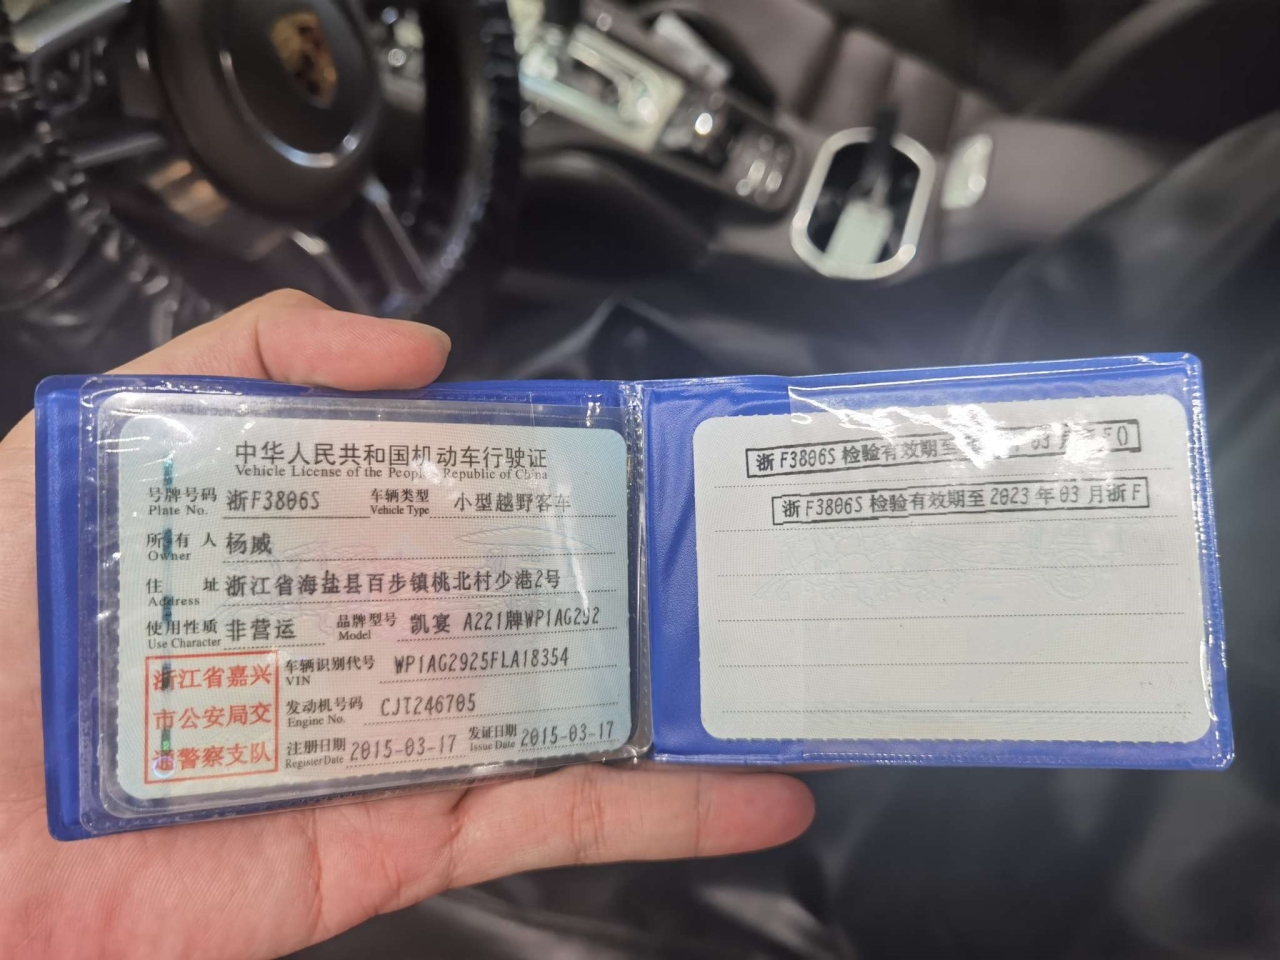 中华人民共和国机动车行驶证
Vehicle License of the People's Republic of China
号牌号码 浙F3806S 车辆类型 小型越野客车
Plate No. Vehicle Type
所有人 杨威
Owner
住址 浙江省海盐县百步镇桃北村少港2号
Address
使用性质 非营运 品牌型号 凯宴 A221牌WP1AG292
Use Character Model
浙江省嘉兴
市公安局交
通警察支队
车辆识别代号 WP1AG2925FLA18354
VIN
发动机号码 CJT246705
Engine No.
注册日期 2015-03-17 发证日期 2015-03-17
Register Date Issue Date
浙F3806S 检验有效期至 年 03月
浙F3806S 检验有效期至 2023 年 03 月浙F